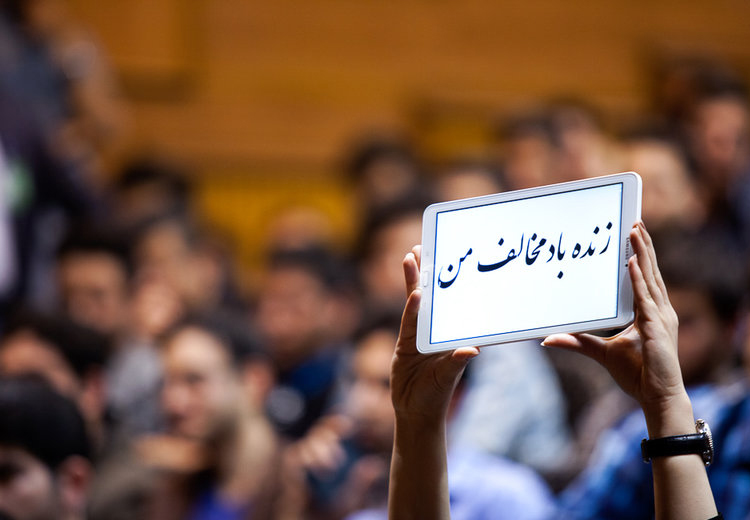 زنده باد مخالف من
SAMSUNG